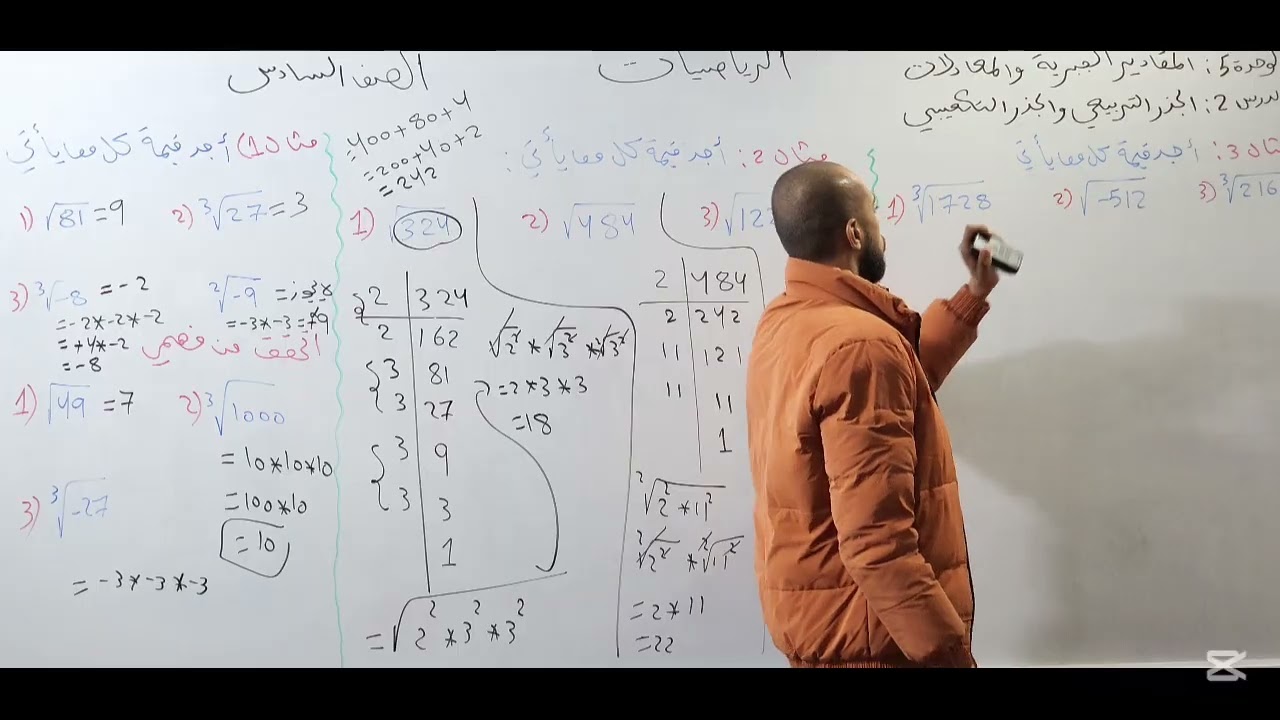 الصف السادس
الرياضيات
الوحدة 5: المقادير الجبرية والمعادلات
الدرس 2: الجذر التربيعي والجذر التكعيبي
مثال 1) أجد قيمة كل مما يأتي
1) √81 = 9
2) ³√27 = 3
3) ³√-8 = -2
= -2*-2*-2
= +4*-2
= -8
²√-9
= -3*-3 = +9
أتحقق من فهمي
1) √49 = 7
2) ³√1000
= 10*10*10
= 100*10
= 10
3) ³√-27
= -3*-3*-3
= 400+80+4
= 200+40+2
= 242
مثال 2: أجد قيمة كل مما يأتي:
1) √324
2) √484
3) √12
2 | 324
2 | 162
3 | 81
3 | 27
3 | 9
3 | 3
1
= √2² * 3² * 3²
√2² * √3² * √3²
= 2*3*3
= 18
2 | 484
2 | 242
11 | 121
11 | 11
1
²√2² * 11²
²√2² * ²√11²
= 2*11
= 22
مثال 3: أجد قيمة كل مما يأتي
1) ³√1728
2) √-512
3) ³√216